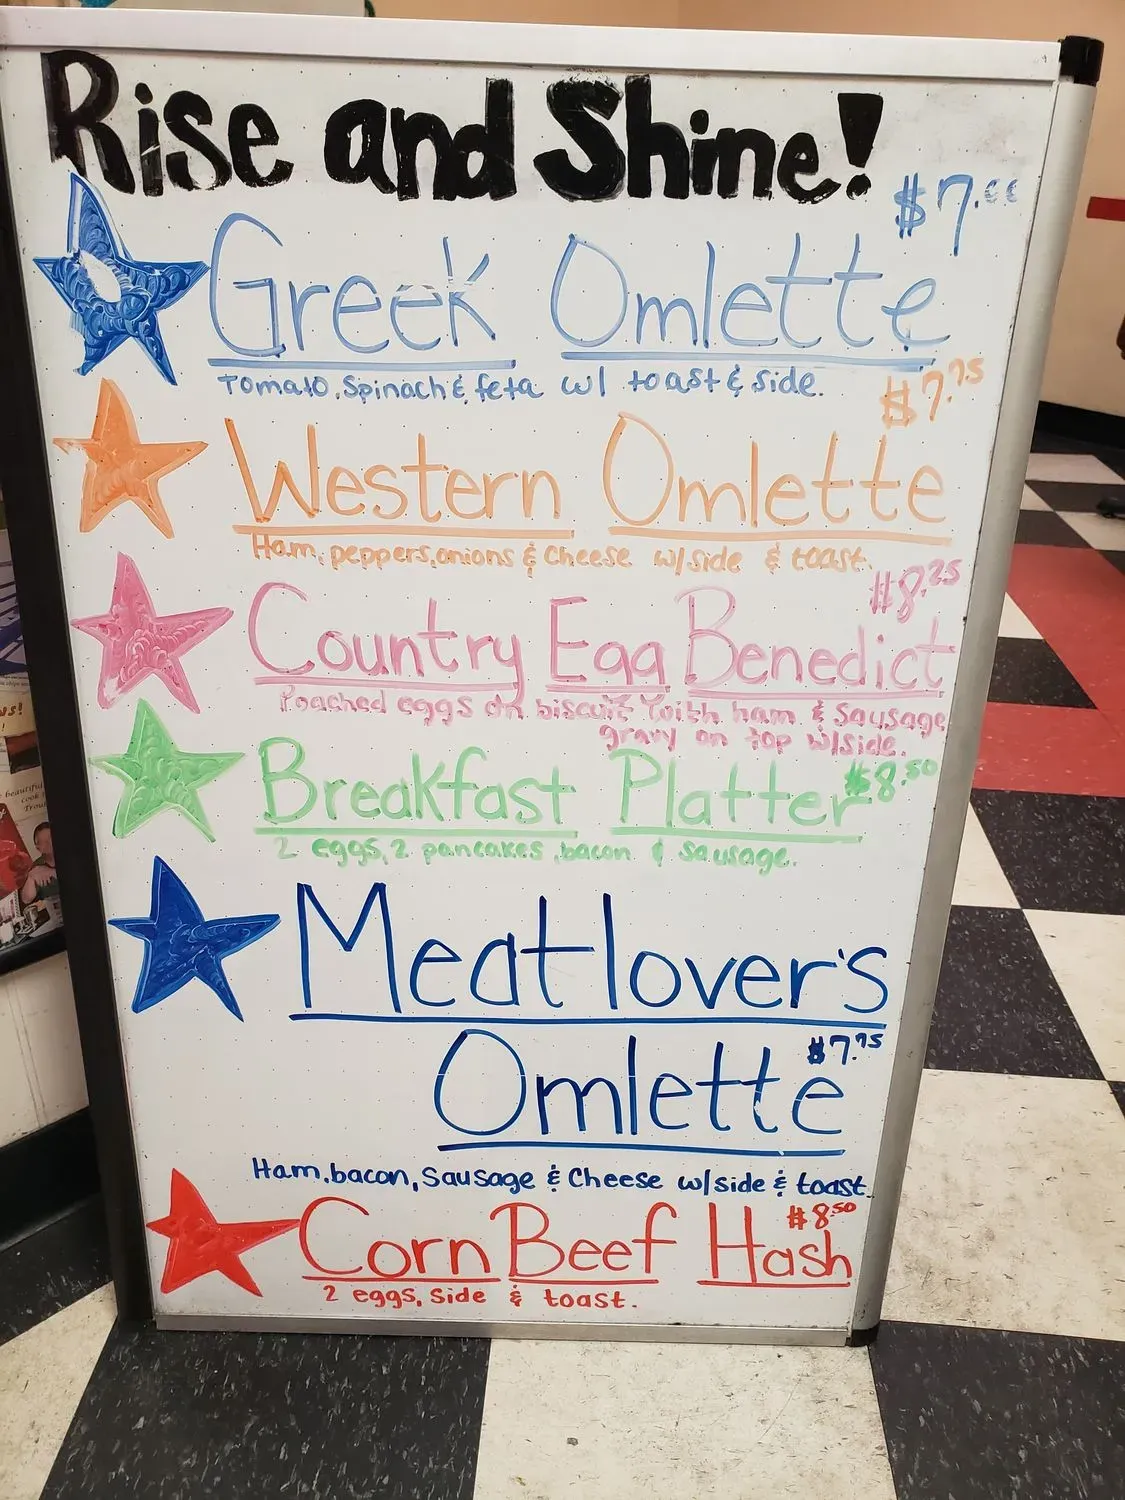 Rise and Shine!
$7.
Greek Omlette
Tomato, Spinach & feta w/ toast & side.
$7.75
Western Omlette
Ham, peppers, onions & cheese w/side & toast.
$8.25
Country Egg Benedict
Poached eggs on biscuit with ham & sausage
gravy on top w/side.
Breakfast Platter $8.50
2 eggs, 2 pancakes, bacon & sausage.
Meatlover's
Omlette $7.75
Ham, bacon, Sausage & Cheese w/side & toast.
Corn Beef Hash $8.50
2 eggs, side & toast.